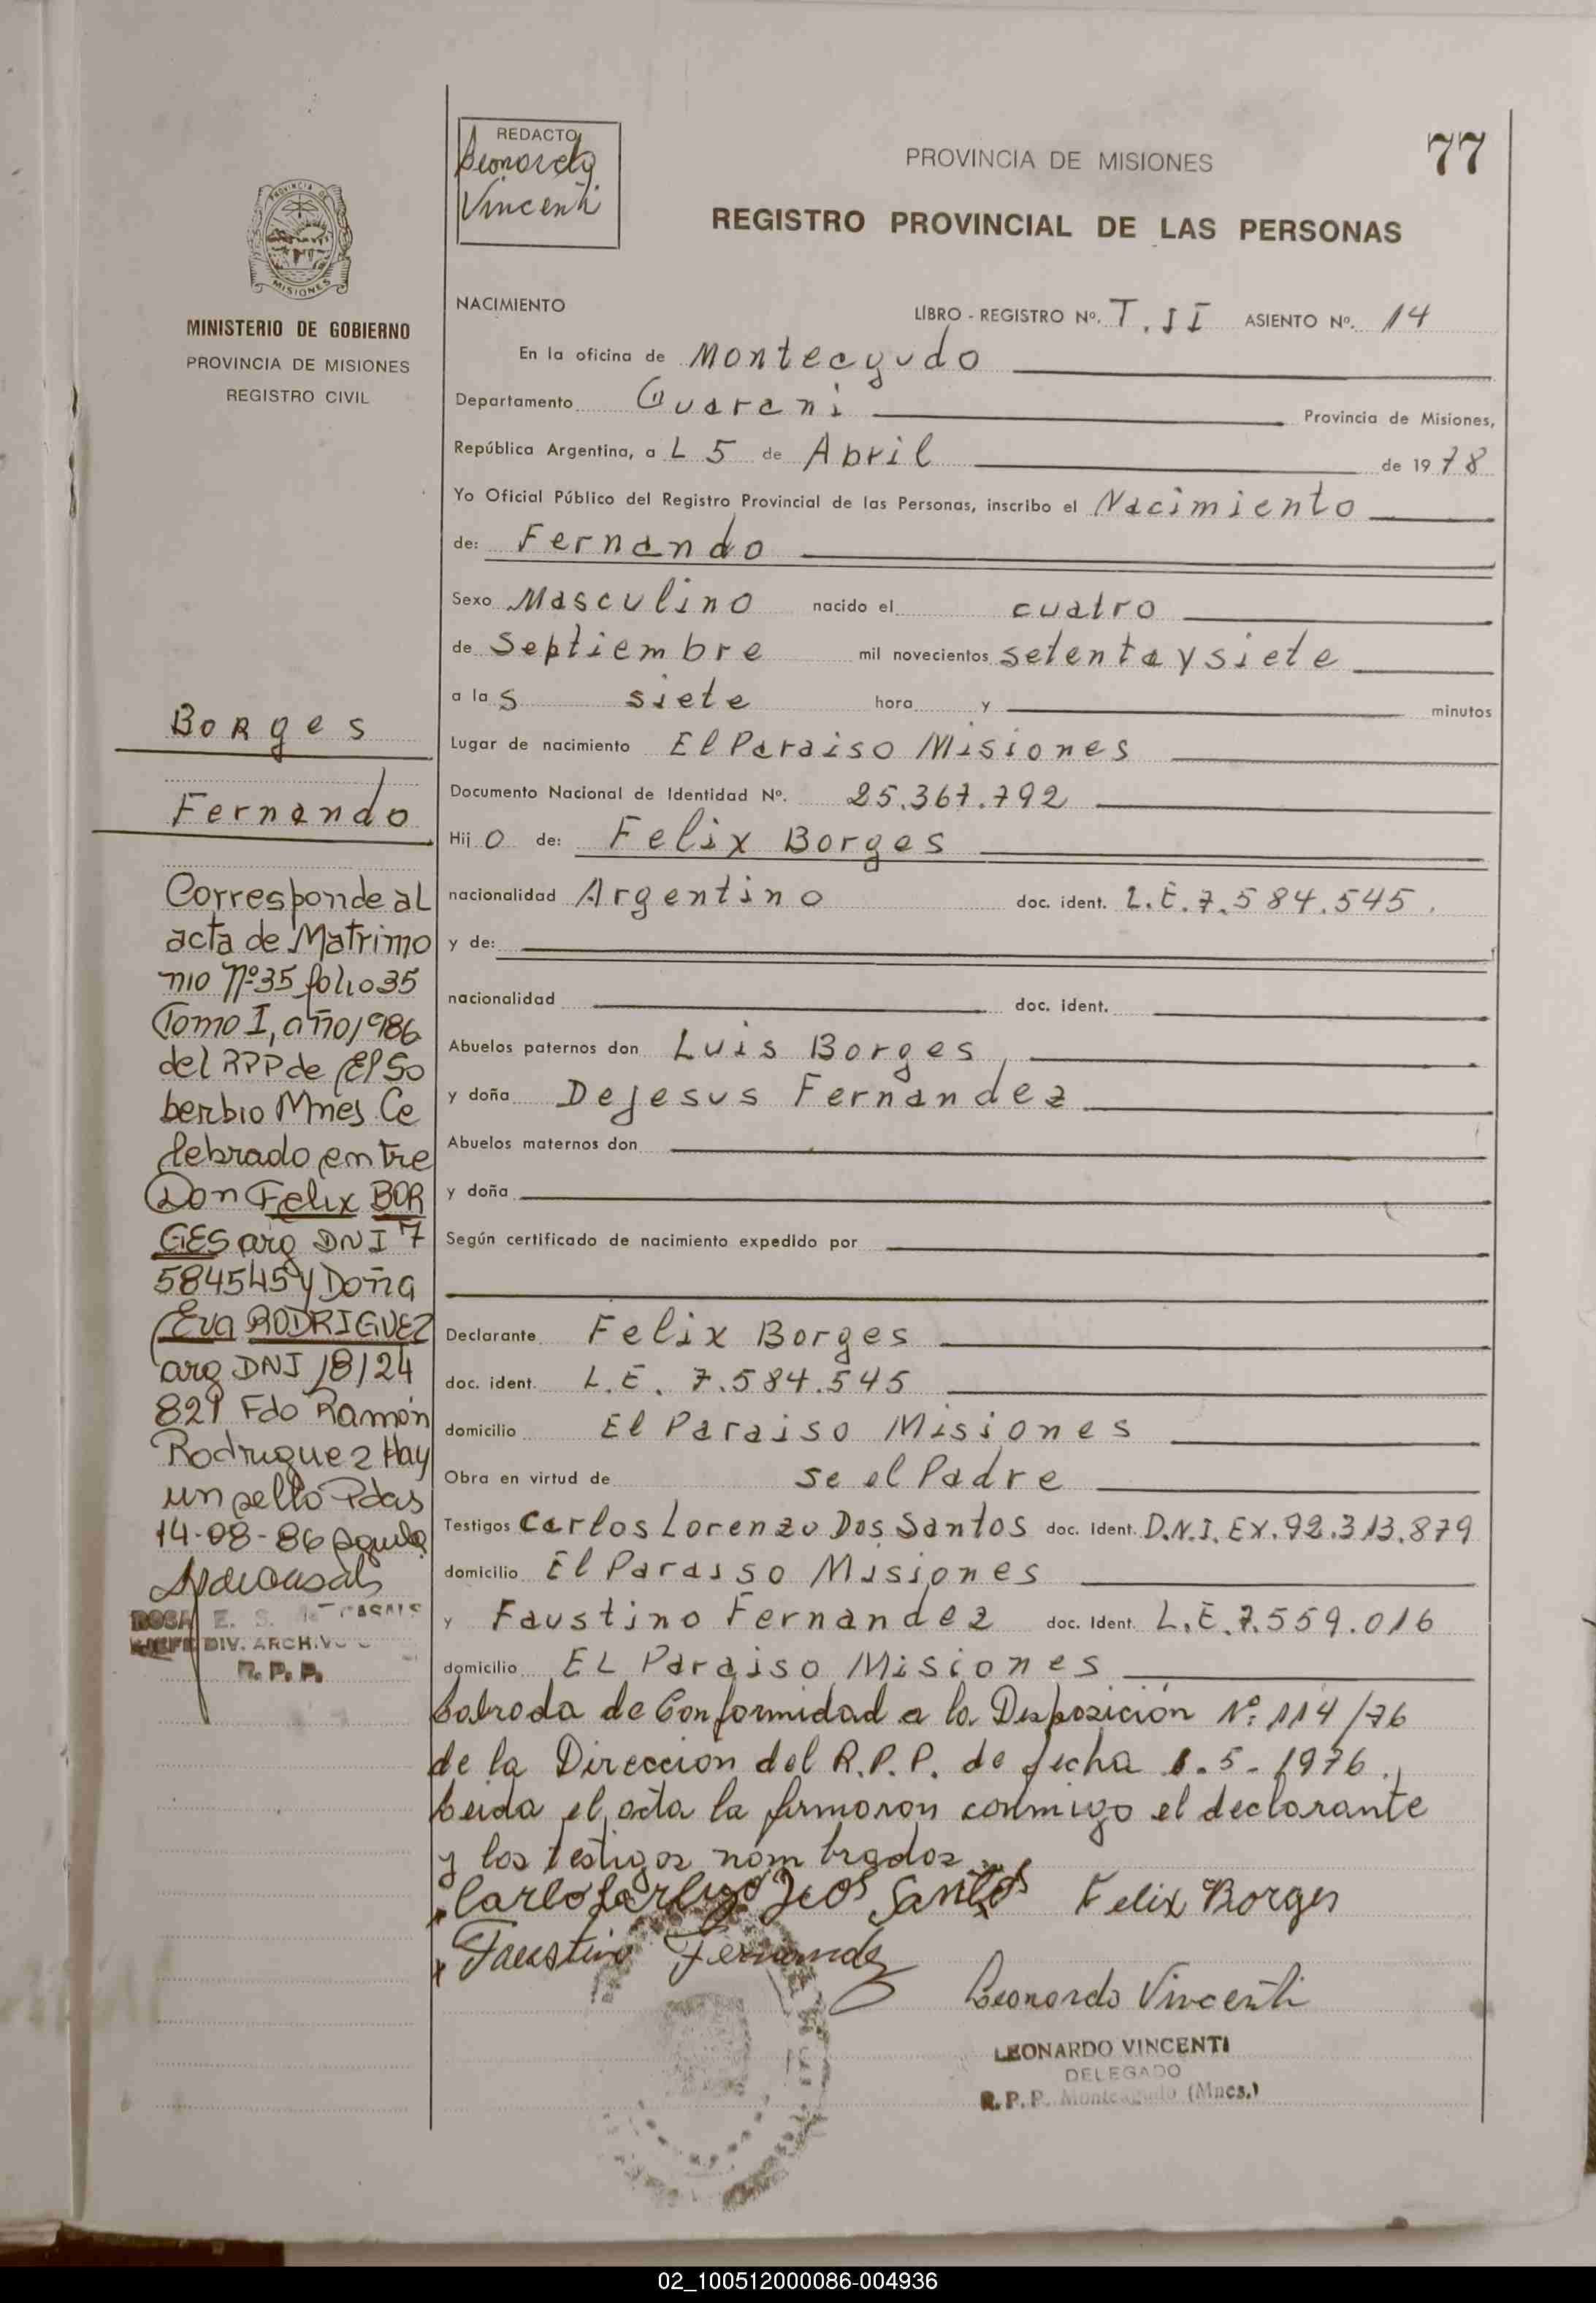 REDACTO
Leonardo
Vincenti
PROVINCIA DE MISIONES
77
REGISTRO PROVINCIAL DE LAS PERSONAS
PROVINCIA DE
MISIONES
MINISTERIO DE GOBIERNO
PROVINCIA DE MISIONES
REGISTRO CIVIL
NACIMIENTO
LIBRO - REGISTRO Nº. T. II ASIENTO Nº. 14
En la oficina de Monteagudo
Departamento Guarani Provincia de Misiones,
República Argentina, a L 5 de Abril de 1978
Yo Oficial Público del Registro Provincial de las Personas, inscribo el Nacimiento
de: Fernando
Sexo Masculino nacido el cuatro
de Septiembre mil novecientos setentaysiete
a las siete hora y minutos
Lugar de nacimiento El Paraiso Misiones
Documento Nacional de Identidad Nº. 25.367.792
Hijo de: Felix Borges
nacionalidad Argentino doc. ident. L.E.7.584.545.
y de:
nacionalidad doc. ident.
Abuelos paternos don Luis Borges
y doña Dejesus Fernandez
Abuelos maternos don
y doña
Según certificado de nacimiento expedido por
Declarante Felix Borges
doc. ident. L.E. 7.584.545
domicilio El Paraiso Misiones
Obra en virtud de se el Padre
Testigos Carlos Lorenzo Dos Santos doc. Ident. D.N.I. EX. 92.313.879
domicilio El Paraiso Misiones
y Faustino Fernandez doc. Ident. L.E.7.559.016
domicilio EL Paraiso Misiones
Labrada de Conformidad a la Disposición Nº 114/76
de la Direccion del R.P.P. de fecha 1.5-1976.
Leida el acta la firmaron conmigo el declarante
y los testigos nombrados.
Dos Santos Felix Borges
Faustino Fernandez
Leonardo Vincenti
LEONARDO VINCENTI
DELEGADO
R.P.P. Monteagudo (Mnes.)
Borges
Fernando
Corresponde al
acta de Matrimo
nio Nº35 folio 35
Tomo I, año 1986
del RPP de El So
berbio Mnes. Ce
lebrado entre
Don Felix BOR
GES arg DNI 7
584545 y Doña
Eva RODRIGUEZ
arg DNI 18124
829 Fdo Ramón
Rodriguez Hay
un sello Pdas
14-08-86
ROSA E. S.
JEFE DIV. ARCHIVO
R. P. P.
02_100512000086-004936